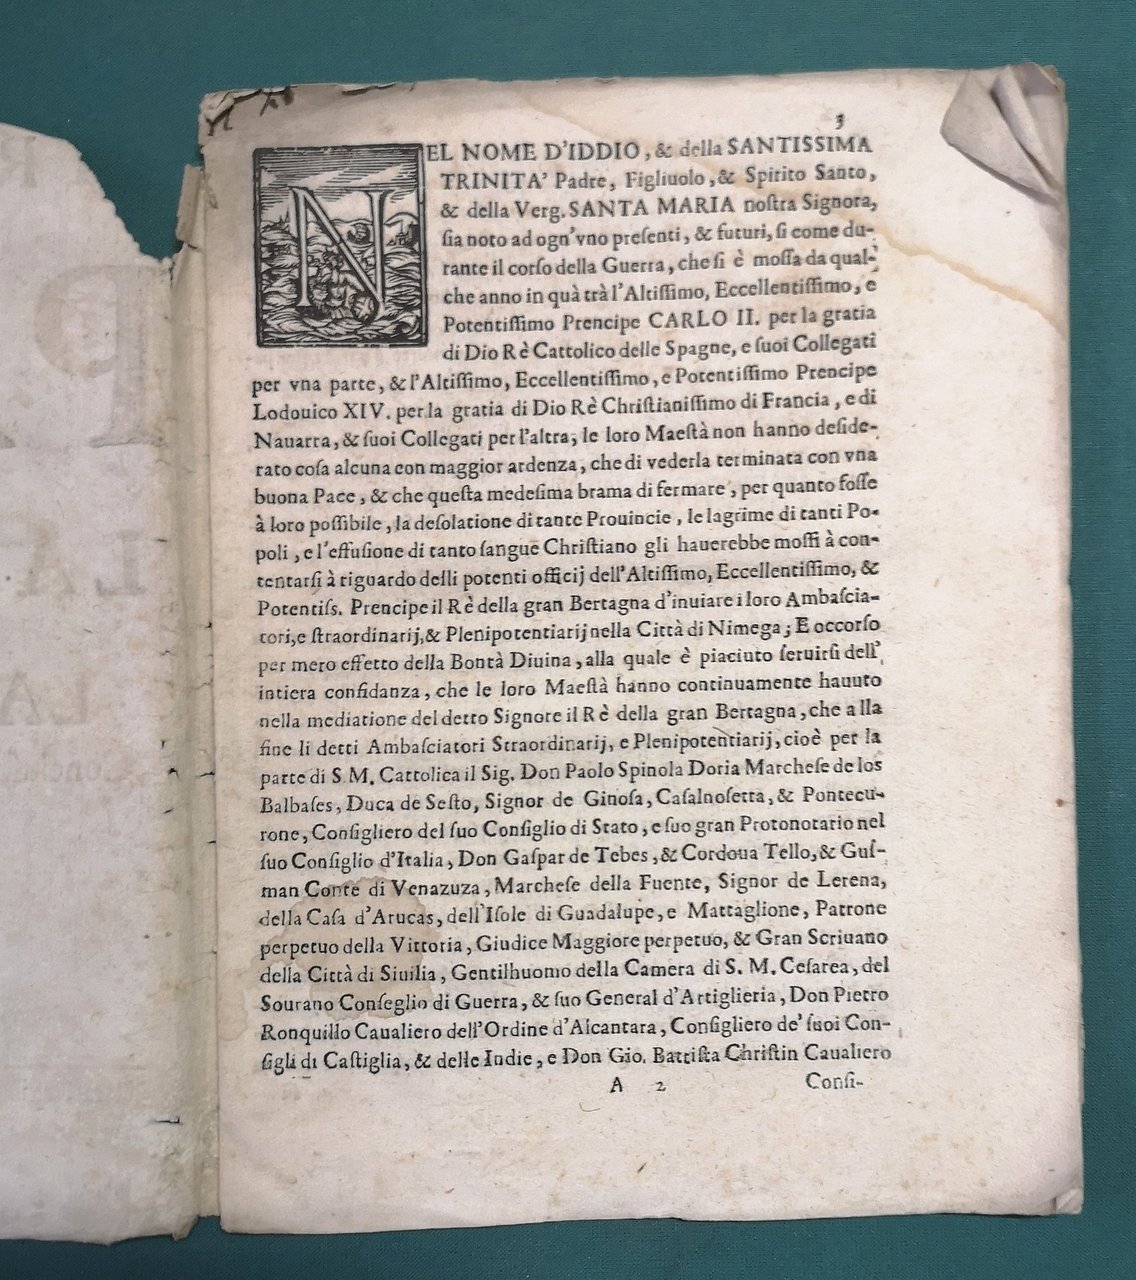 3
NEL NOME D'IDDIO, & della SANTISSIMA
TRINITA' Padre, Figliuolo, & Spirito Santo,
& della Verg. SANTA MARIA noſtra Signora,
ſia noto ad ogn'vno preſenti, & futuri, ſi come du-
rante il corſo della Guerra, che ſi è moſſa da qual-
che anno in quà trà l'Altiſſimo, Eccellentiſſimo, e
Potentiſſimo Prencipe CARLO II. per la gratia
di Dio Rè Cattolico delle Spagne, e ſuoi Collegati
per vna parte, & l'Altiſſimo, Eccellentiſſimo, e Potentiſſimo Prencipe
Lodouico XIV. per la gratia di Dio Rè Chriſtianiſſimo di Francia, e di
Nauarra, & ſuoi Collegati per l'altra; le loro Maeſtà non hanno deſide-
rato coſa alcuna con maggior ardenza, che di vederla terminata con vna
buona Pace, & che queſta medeſima brama di fermare, per quanto foſſe
à loro poſſibile, la deſolatione di tante Prouincie, le lagrime di tanti Po-
poli, e l'effuſione di tanto ſangue Chriſtiano gli hauerebbe moſſi à con-
tentarſi à riguardo delli potenti officij dell'Altiſſimo, Eccellentiſſimo, &
Potentiſs. Prencipe il Rè della gran Bertagna d'inuiare i loro Ambaſcia-
tori, e ſtraordinarij, & Plenipotentiarij nella Città di Nimega; E occorſo
per mero effetto della Bontà Diuina, alla quale è piaciuto ſeruirſi dell'
intiera confidanza, che le loro Maeſtà hanno continuamente hauuto
nella mediatione del detto Signore il Rè della gran Bertagna, che alla
fine li detti Ambaſciatori Straordinarij, e Plenipotentiarij, cioè per la
parte di S M. Cattolica il Sig. Don Paolo Spinola Doria Marcheſe de los
Balbaſes, Duca de Seſto, Signor de Ginoſa, Caſalnoſetta, & Pontecu-
rone, Conſigliero del ſuo Conſiglio di Stato, e ſuo gran Protonotario nel
ſuo Conſiglio d'Italia, Don Gaſpar de Tebes, & Cordoua Tello, & Guſ-
man Conte di Venazuza, Marcheſe della Fuente, Signor de Lerena,
della Caſa d'Arucas, dell'Iſole di Guadalupe, e Mattaglione, Patrone
perpetuo della Vittoria, Giudice Maggiore perpetuo, & Gran Scriuano
della Città di Siuilia, Gentilhuomo della Camera di S. M. Ceſarea, del
Sourano Conſeglio di Guerra, & ſuo General d'Artiglieria, Don Pietro
Ronquillo Caualiero dell'Ordine d'Alcantara, Conſigliero de' ſuoi Con-
ſigli di Caſtiglia, & delle Indie, e Don Gio. Battiſta Chriſtin Caualiero
A 2 Conſi-